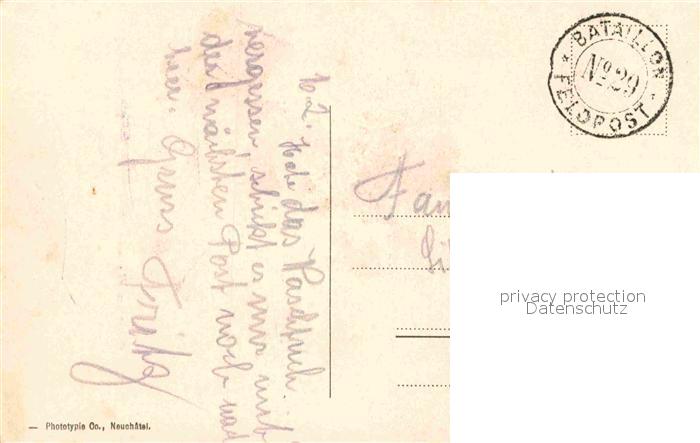 BATAILLON
No. 29
FELDPOST
Habe das Waschtuch
vergessen, schickt es mir mit
der nächsten Post noch nach
hier. Gruss
Fritz
Fam
privacy protection
Datenschutz
— Phototypie Co., Neuchâtel.